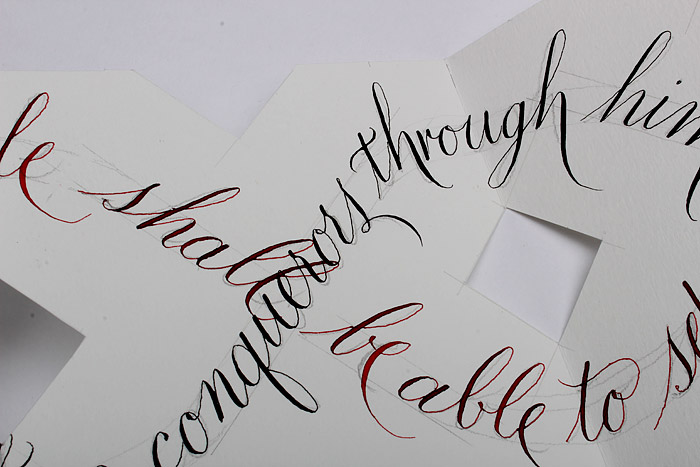 conquerors through him
le shall be able to se